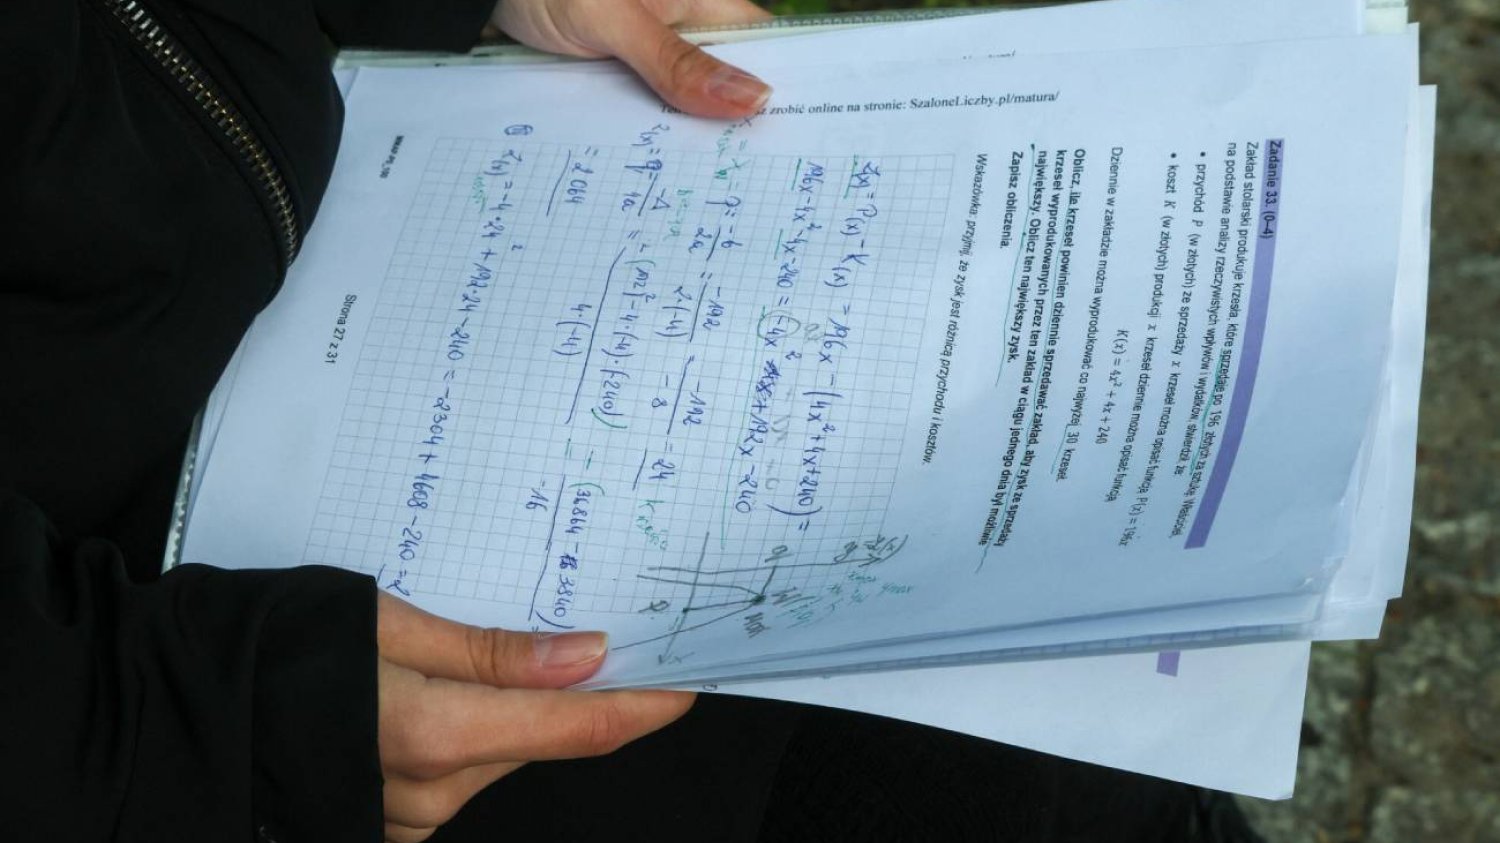 zrobić online na stronie: SzaloneLiczby.pl/matura/
Zadanie 33. (0–4)
Zakład stolarski produkuje krzesła, które sprzedaje po 196 złotych za sztukę. Właściciel
na podstawie analizy rzeczywistych wpływów i wydatków stwierdził, że:
• przychód P (w złotych) ze sprzedaży x krzeseł można opisać funkcją P(x) = 196x
• koszt K (w złotych) produkcji x krzeseł dziennie można opisać funkcją
K(x) = 4x² + 4x + 240
Dziennie w zakładzie można wyprodukować co najwyżej 30 krzeseł.
Oblicz, ile krzeseł powinien dziennie sprzedawać zakład, aby zysk ze sprzedaży
krzeseł wyprodukowanych przez ten zakład w ciągu jednego dnia był możliwie
największy. Oblicz ten największy zysk.
Zapisz obliczenia.
Wskazówka: przyjmij, że zysk jest różnicą przychodu i kosztów.
Z(x) = P(x) – K(x) = 196x – (4x² + 4x + 240) =
196x – 4x² – 4x – 240 = –4x² + 192x – 240
= p = –b/2a = –192/2·(–4) = –192/–8 = 24
= q = –Δ/4a = –(192² – 4·(–4)·(–240))/4·(–4) = –(36864 – 3840)/–16 =
= 2064
Z(x) = –4·24² + 192·24 – 240 = –2304 + 4608 – 240 = 2
Strona 27 z 31